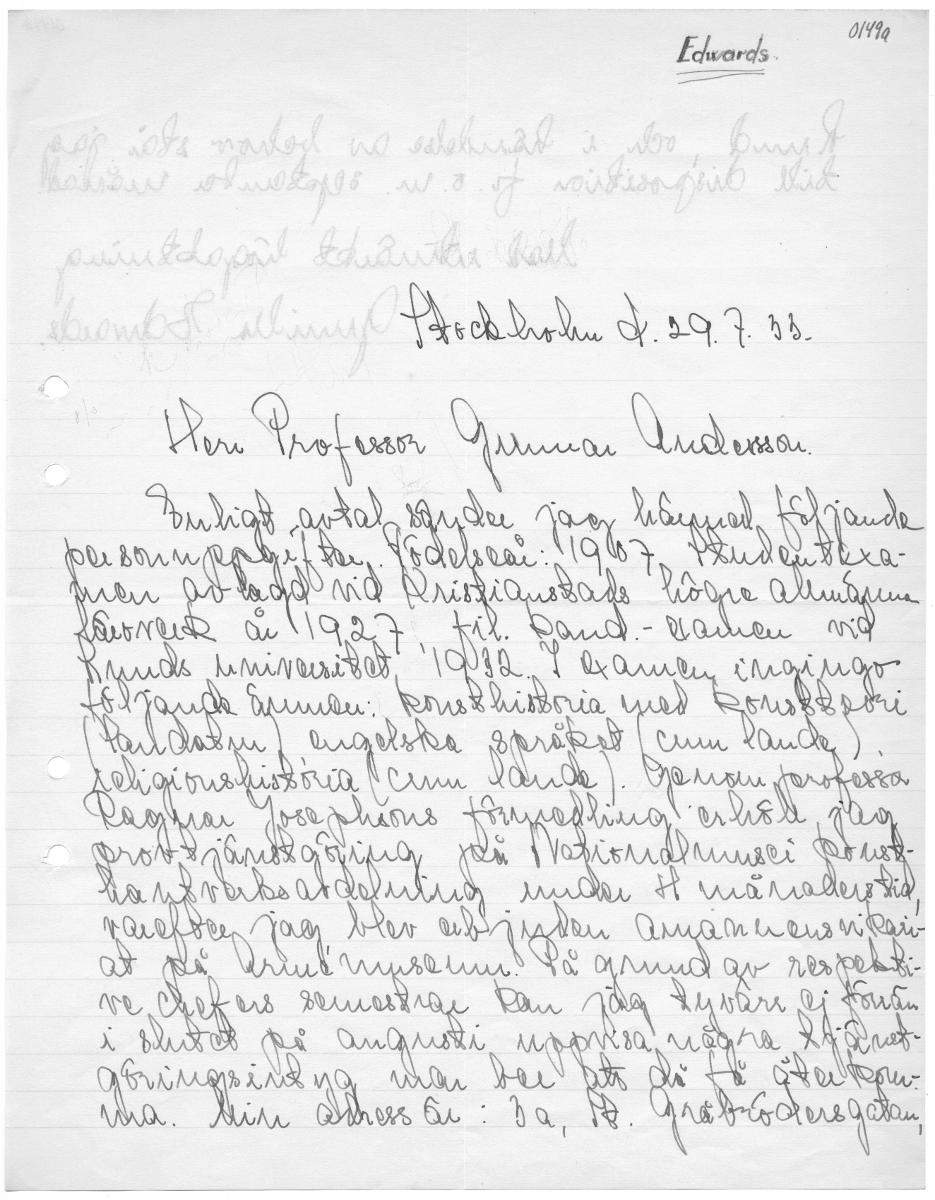 0149a
Edwards.
Stockholm d. 29. 7. 33.
Herr Professor Gunnar Andersson.
Enligt avtal sänder jag härmed följande
personuppgifter. Födelseår: 1907. Studentexa-
men avlagd vid Kristianstads högre allmänna
läroverk år 1927, fil. kand.-examen vid
Lunds universitet 1932. I examen ingingo
följande ämnen: konsthistoria med konstteori
(laudatur) engelska språket (cum laude)
religionshistoria (cum laude). Genom professor
Ragnar Josephsons förmedling erhöll jag
provtjänstgöring på Nationalmusei konst-
hantverksavdelning under 4 månaders tid,
varefter jag blev erbjuden amanuensvikari-
at på Armémuseum. På grund av respekti-
ve chefers semestrar kan jag tyvärr ej förrän
i slutet på augusti uppvisa några tjänst-
göringsintyg men ber att då få återkom-
ma. Min adress är: 3a, St. Gråbrödersgatan,
Lund, och i händelse av behov står jag
till disposition fr. o. m. september månad
Med utmärkt högaktning
Gunilla Edwards.